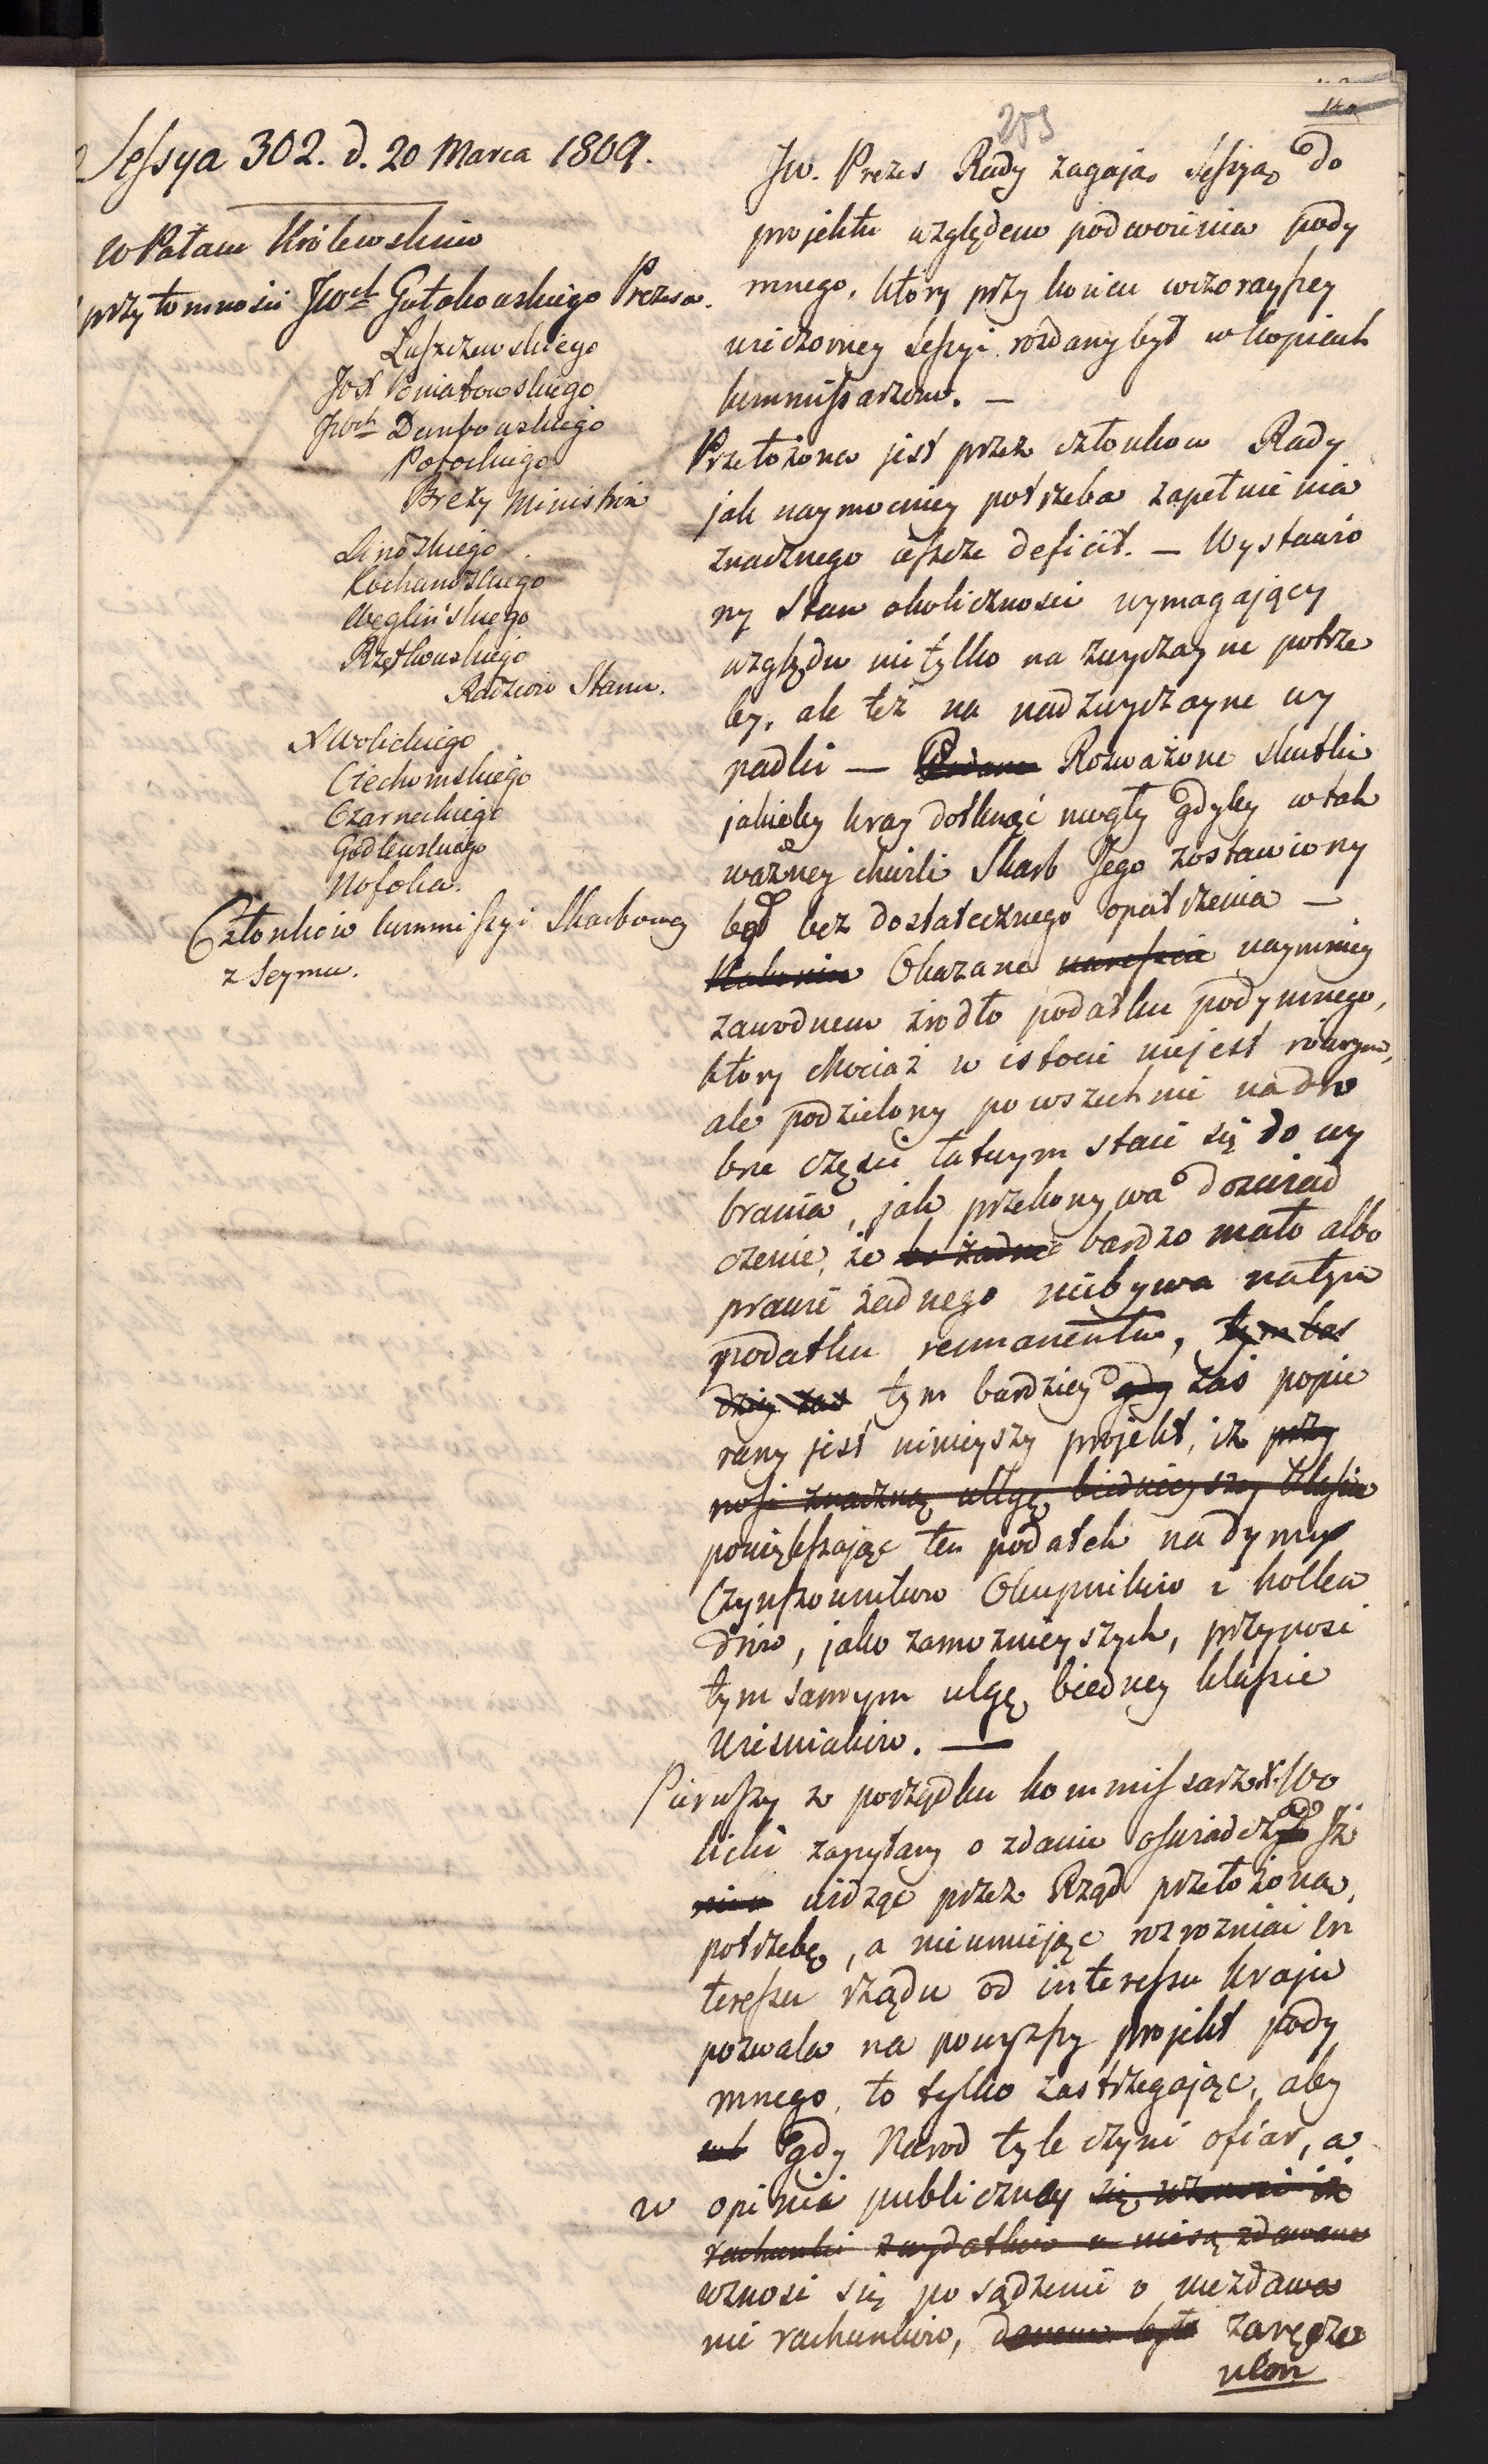 203
Sessya 302. d. 20 Marca 1809.
w Pałacu Królewskim
przytomności JWch Gutakowskiego Prezesa.
Luszczewskiego
JOX Poniatowskiego
JWch Dembowskiego
Potockiego
Brezy Ministrów
Linoskiego
Kochanoskiego
Węglińskiego
Rzętkowskiego
Radzców Stanu.
X Wolickiego
Ciechomskiego
Czarneckiego
Godlewskiego
Nosoka.
Członków kommissyi Skarbowey
z Seymu.
JW. Prezes Rady zagaja Sessyą do
projektu względem podwoienia pody
mnego, który przy końcu wczorayszey
wieczorney Sessyi rozdany był w kopiach
kommissarzom. —
Przełożona jest przez członkow Rady
jak naymocniey potrzeba zapełnienia
znacznego ieszcze deficit. — Wystawio
ny Stan okoliczności wymagający
względu nietylko na zwyczayne potrze
by, ale też na nadzwyczayne wy
padki — Podane Rozważone skutki
jakieby kray dotknąć mogły gdyby w tak
ważney chwili Skarb Jego zostawiony
był bez dostatecznego opatrzenia —
Okazane nareszcie naymniey
zawodnem źrodło podatku podymnego,
który chociaż w istocie niejest równym,
ale podzielony powszechnie na dro
bne części łatwym staie się do wy
brania, jak przekonywa doświad
czenie, że bo żadne bardzo mało albo
prawie żadnego niebywa na tym
podatku remanentu, tym bar
dziey zaś tym bardziey gdy zaś popie
rany jest ninieyszy projekt, iż przy
nosi znaczną ulgę biednieyszey klassie
powiększając ten podatek na dymy
Czynszowników Okupników i hollen
drów, jako zamożnieyszych, przynosi
tym samym ulgę biedney klassie
Wieśniaków. —
Pierwszy z porządku kommissarz X. Wo
licki zapytany o zdanie oświadcza Iż
widząc przez Rząd przełożoną
potrzebę, a nieumiejąc rozrozniać in
teressu rządu od interessu kraju
pozwala na powyższy projekt pody
mnego, to tylko zastrzegając, aby
gdy Narod tyle czyni ofiar, a
w opinii publiczney się wznosi iż
rachunki z wydatków niesą zdawane
wznosi się posądzenie o niezdawa
nie rachunków, danem było zaręcze